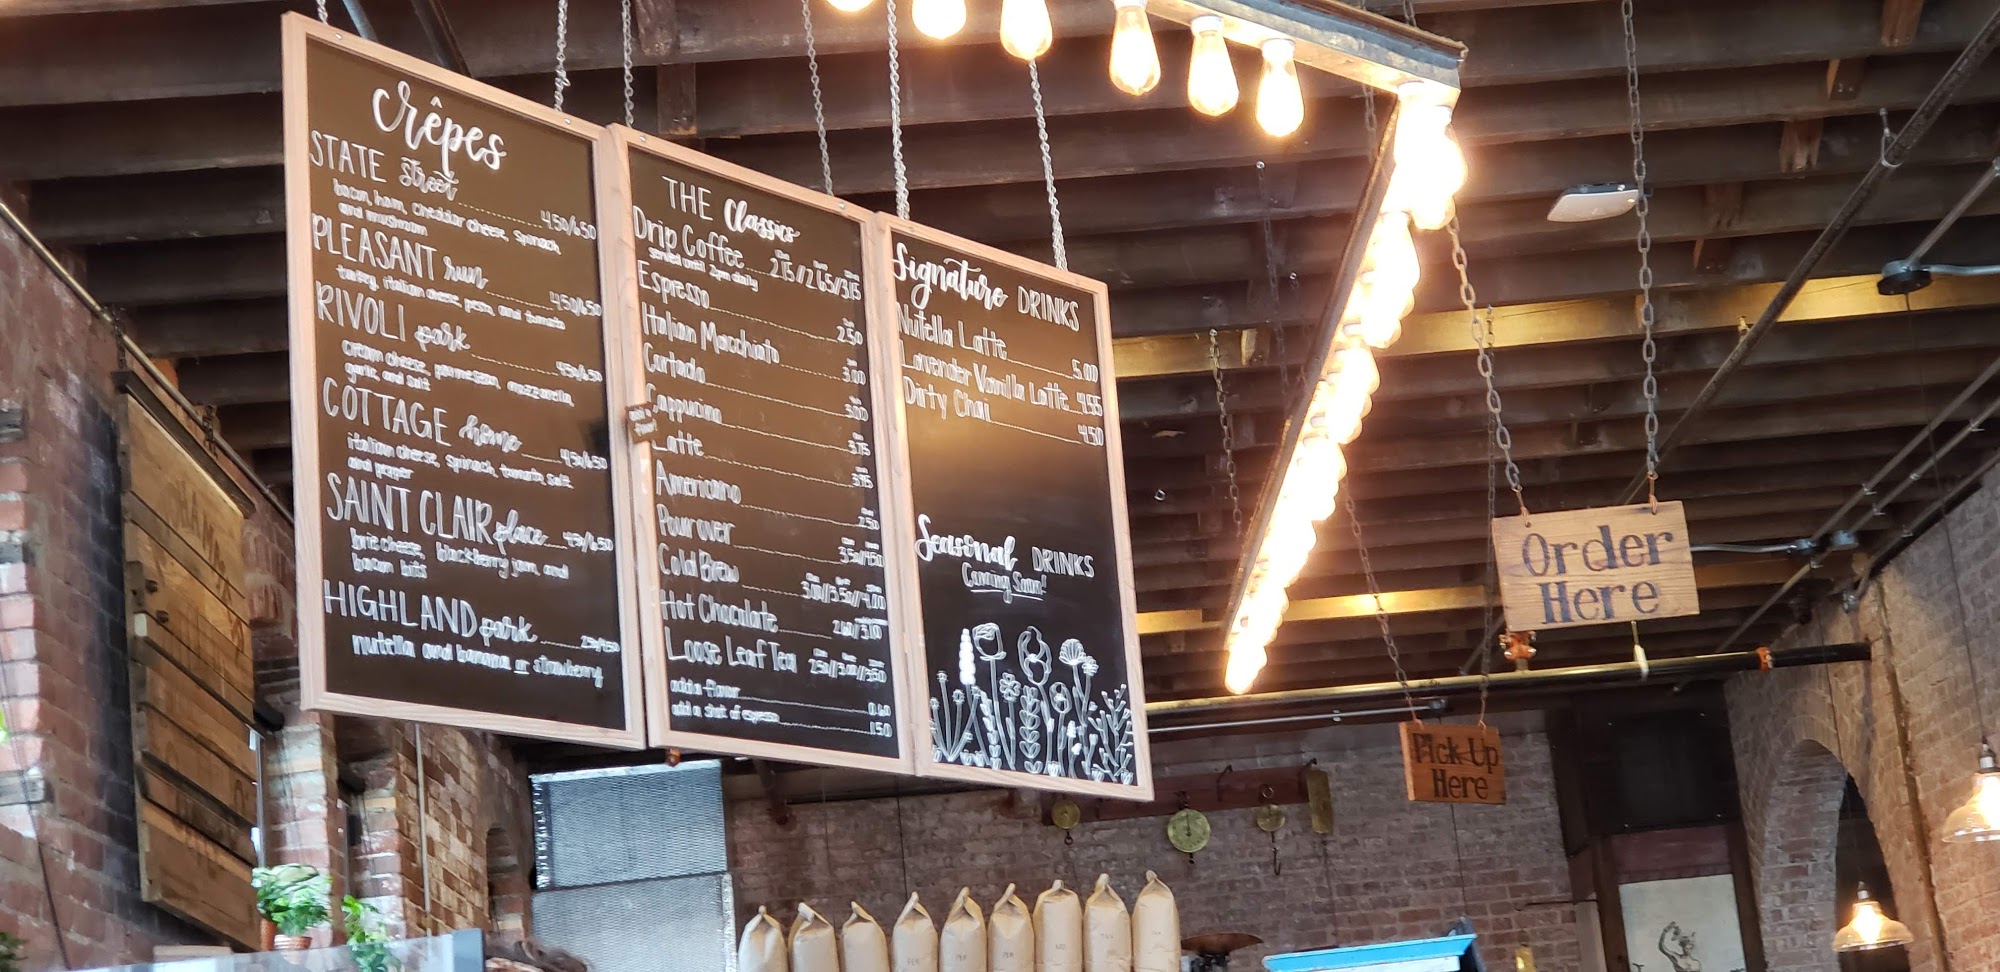 crêpes
STATE street 4.50/6.50
bacon, ham, cheddar cheese, spinach
and mushroom
PLEASANT run 4.50/6.50
turkey, italian cheese, pesto, and tomato
RIVOLI park 4.50/6.50
cream cheese, parmesan, mozzarella,
garlic, and salt
COTTAGE home 4.50/6.50
italian cheese, spinach, tomato, salt
and pepper
SAINT CLAIR place 4.50/6.50
brie cheese, blackberry jam, and
bacon bits
HIGHLAND park
nutella and banana or strawberry
THE Classics
Drip Coffee 2.15//2.65//3.15
served until 2pm daily
Espresso 2.50
Italian Macchiato 3.00
Cortado 3.00
Cappuccino 3.75
Latte 3.95
Americano 2.50
Pour over 3.50/4.50
Cold Brew 3.00//3.50//4.00
Hot Chocolate 2.60/3.10
Loose Leaf Tea 2.50//3.00//3.50
add a flavor 0.60
add a shot of espresso 1.50
Signature DRINKS
Nutella Latte 5.00
Lavender Vanilla Latte 4.55
Dirty Chai 4.50
Seasonal DRINKS
Coming Soon!
Order
Here
Pick Up
Here